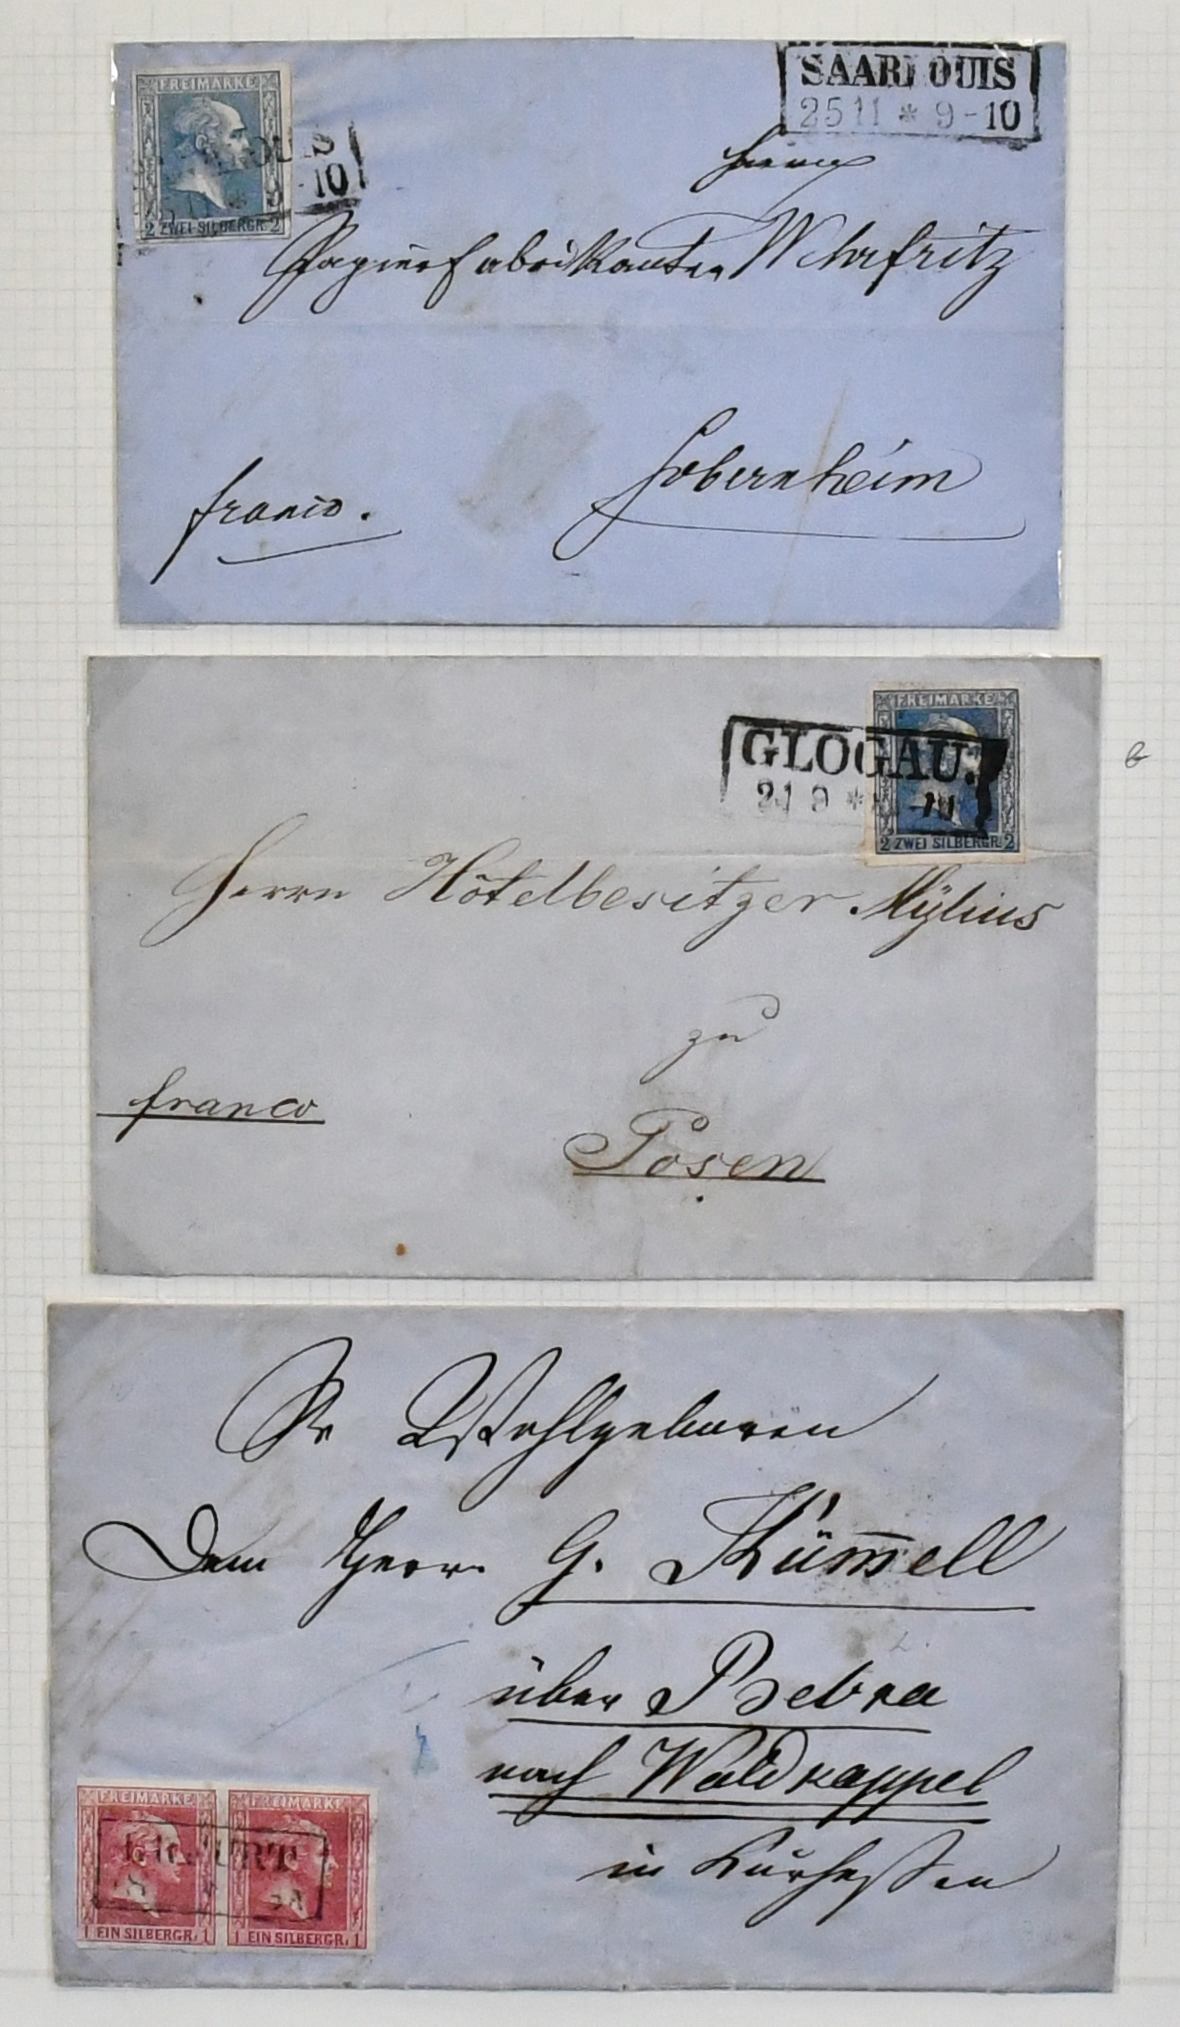 FREIMARKE
2 ZWEI SILBERGR. 2
SAARLOUIS
25 11 * 9-10
Herrn
Papierfabrikanten Wehrfritz
franco.
Sobernheim
FREIMARKE
2 ZWEI SILBERGR. 2
GLOGAU.
21 9 *
Herrn Hôtelbesitzer Mylius
zu
franco
Posen
Sr Wohlgeboren
Dem Herrn G. Küm̅ell
über Bebra
nach Waldkappel
in Kurhessen
FREIMARKE FREIMARKE
ERFURT
1 EIN SILBERGR. 1 1 EIN SILBERGR. 1